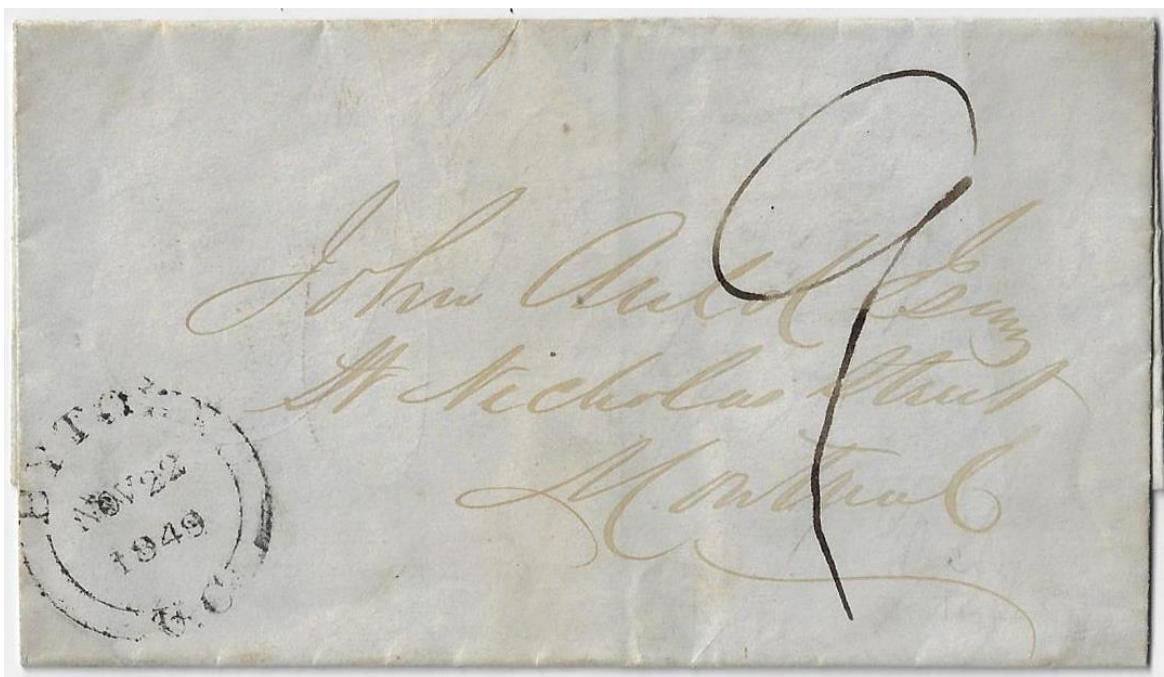 9
John Auld Esqr
St Nicholas Street
Montreal
BYTOWN
NOV 22
1849
U.C.